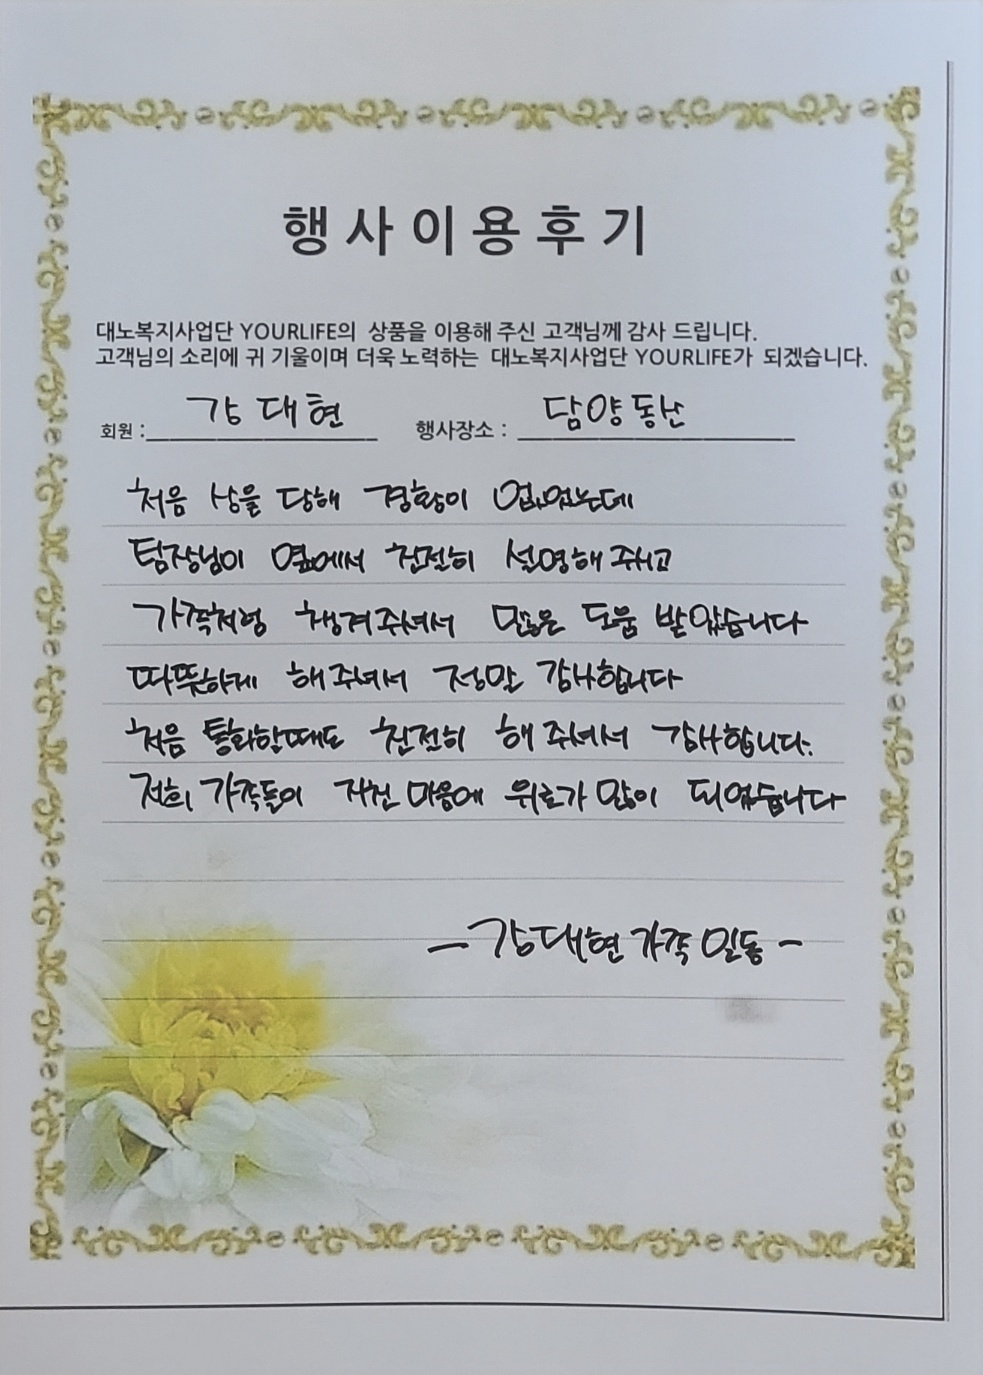 행사이용후기
대노복지사업단 YOURLIFE의 상품을 이용해 주신 고객님께 감사 드립니다.
고객님의 소리에 귀 기울이며 더욱 노력하는 대노복지사업단 YOURLIFE가 되겠습니다.
회원 : 강대현 행사장소 : 담양동산
처음 상을 당해 경황이 없었는데
팀장님이 옆에서 친절히 설명해 주시고
가족처럼 챙겨주셔서 많은 도움 받았습니다
따뜻하게 해주셔서 정말 감사합니다
처음 통화할때도 친절히 해 주셔서 감사합니다.
저희 가족들이 지친 마음에 위로가 많이 되었습니다
- 강대현 가족 일동 -